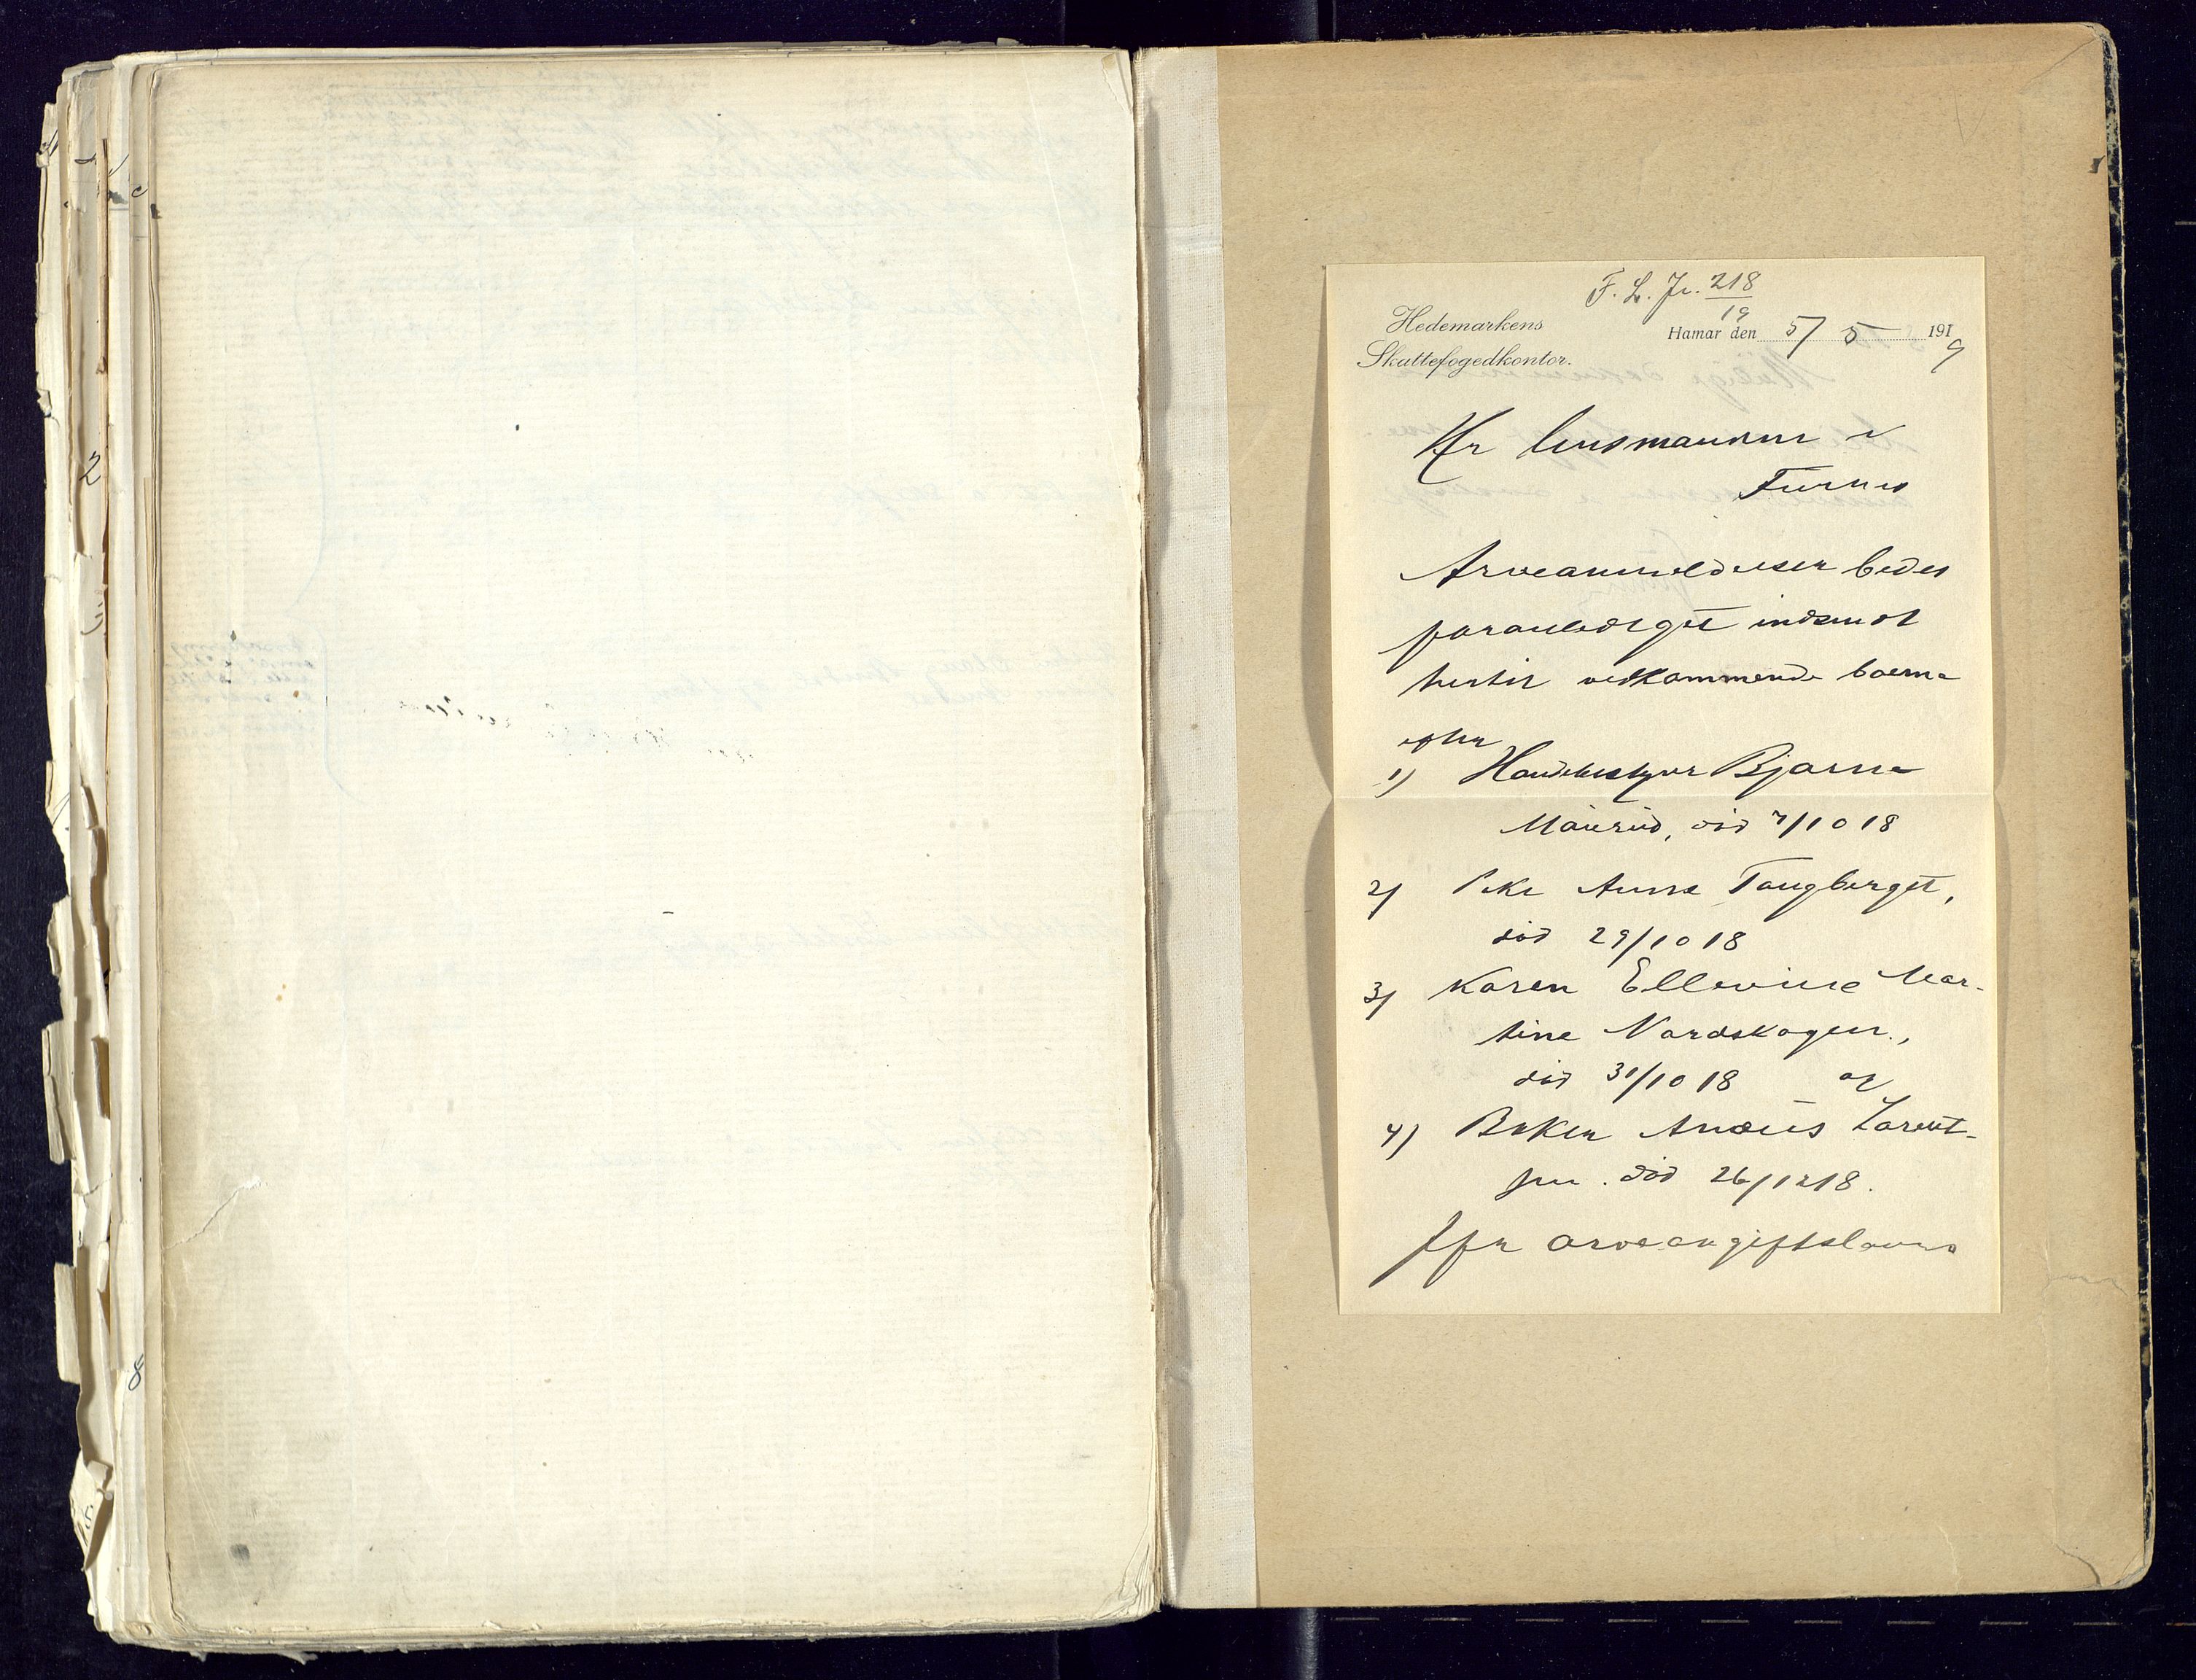 F. L. Jr. 218
19
Hedemarkens
Skattefogedkontor.
Hamar den 5/5 1919
Hr lensmannen i
Furnes
Arveanmeldelsen bedes
foranlediget indsendt
hertil vedkommende boerne
efter
1) Handelsbestyrer Bjarne
Maurud, død 7/10 18
2) Pike Anna Tangberget,
død 29/10 18
3) Karen Ellevine Mar-
tine Nordskogen.,
død 31/10 18 og
4) Enkem Anæus Lorent-
sen. død 26/12 18.
Jfr arveavgiftslovens